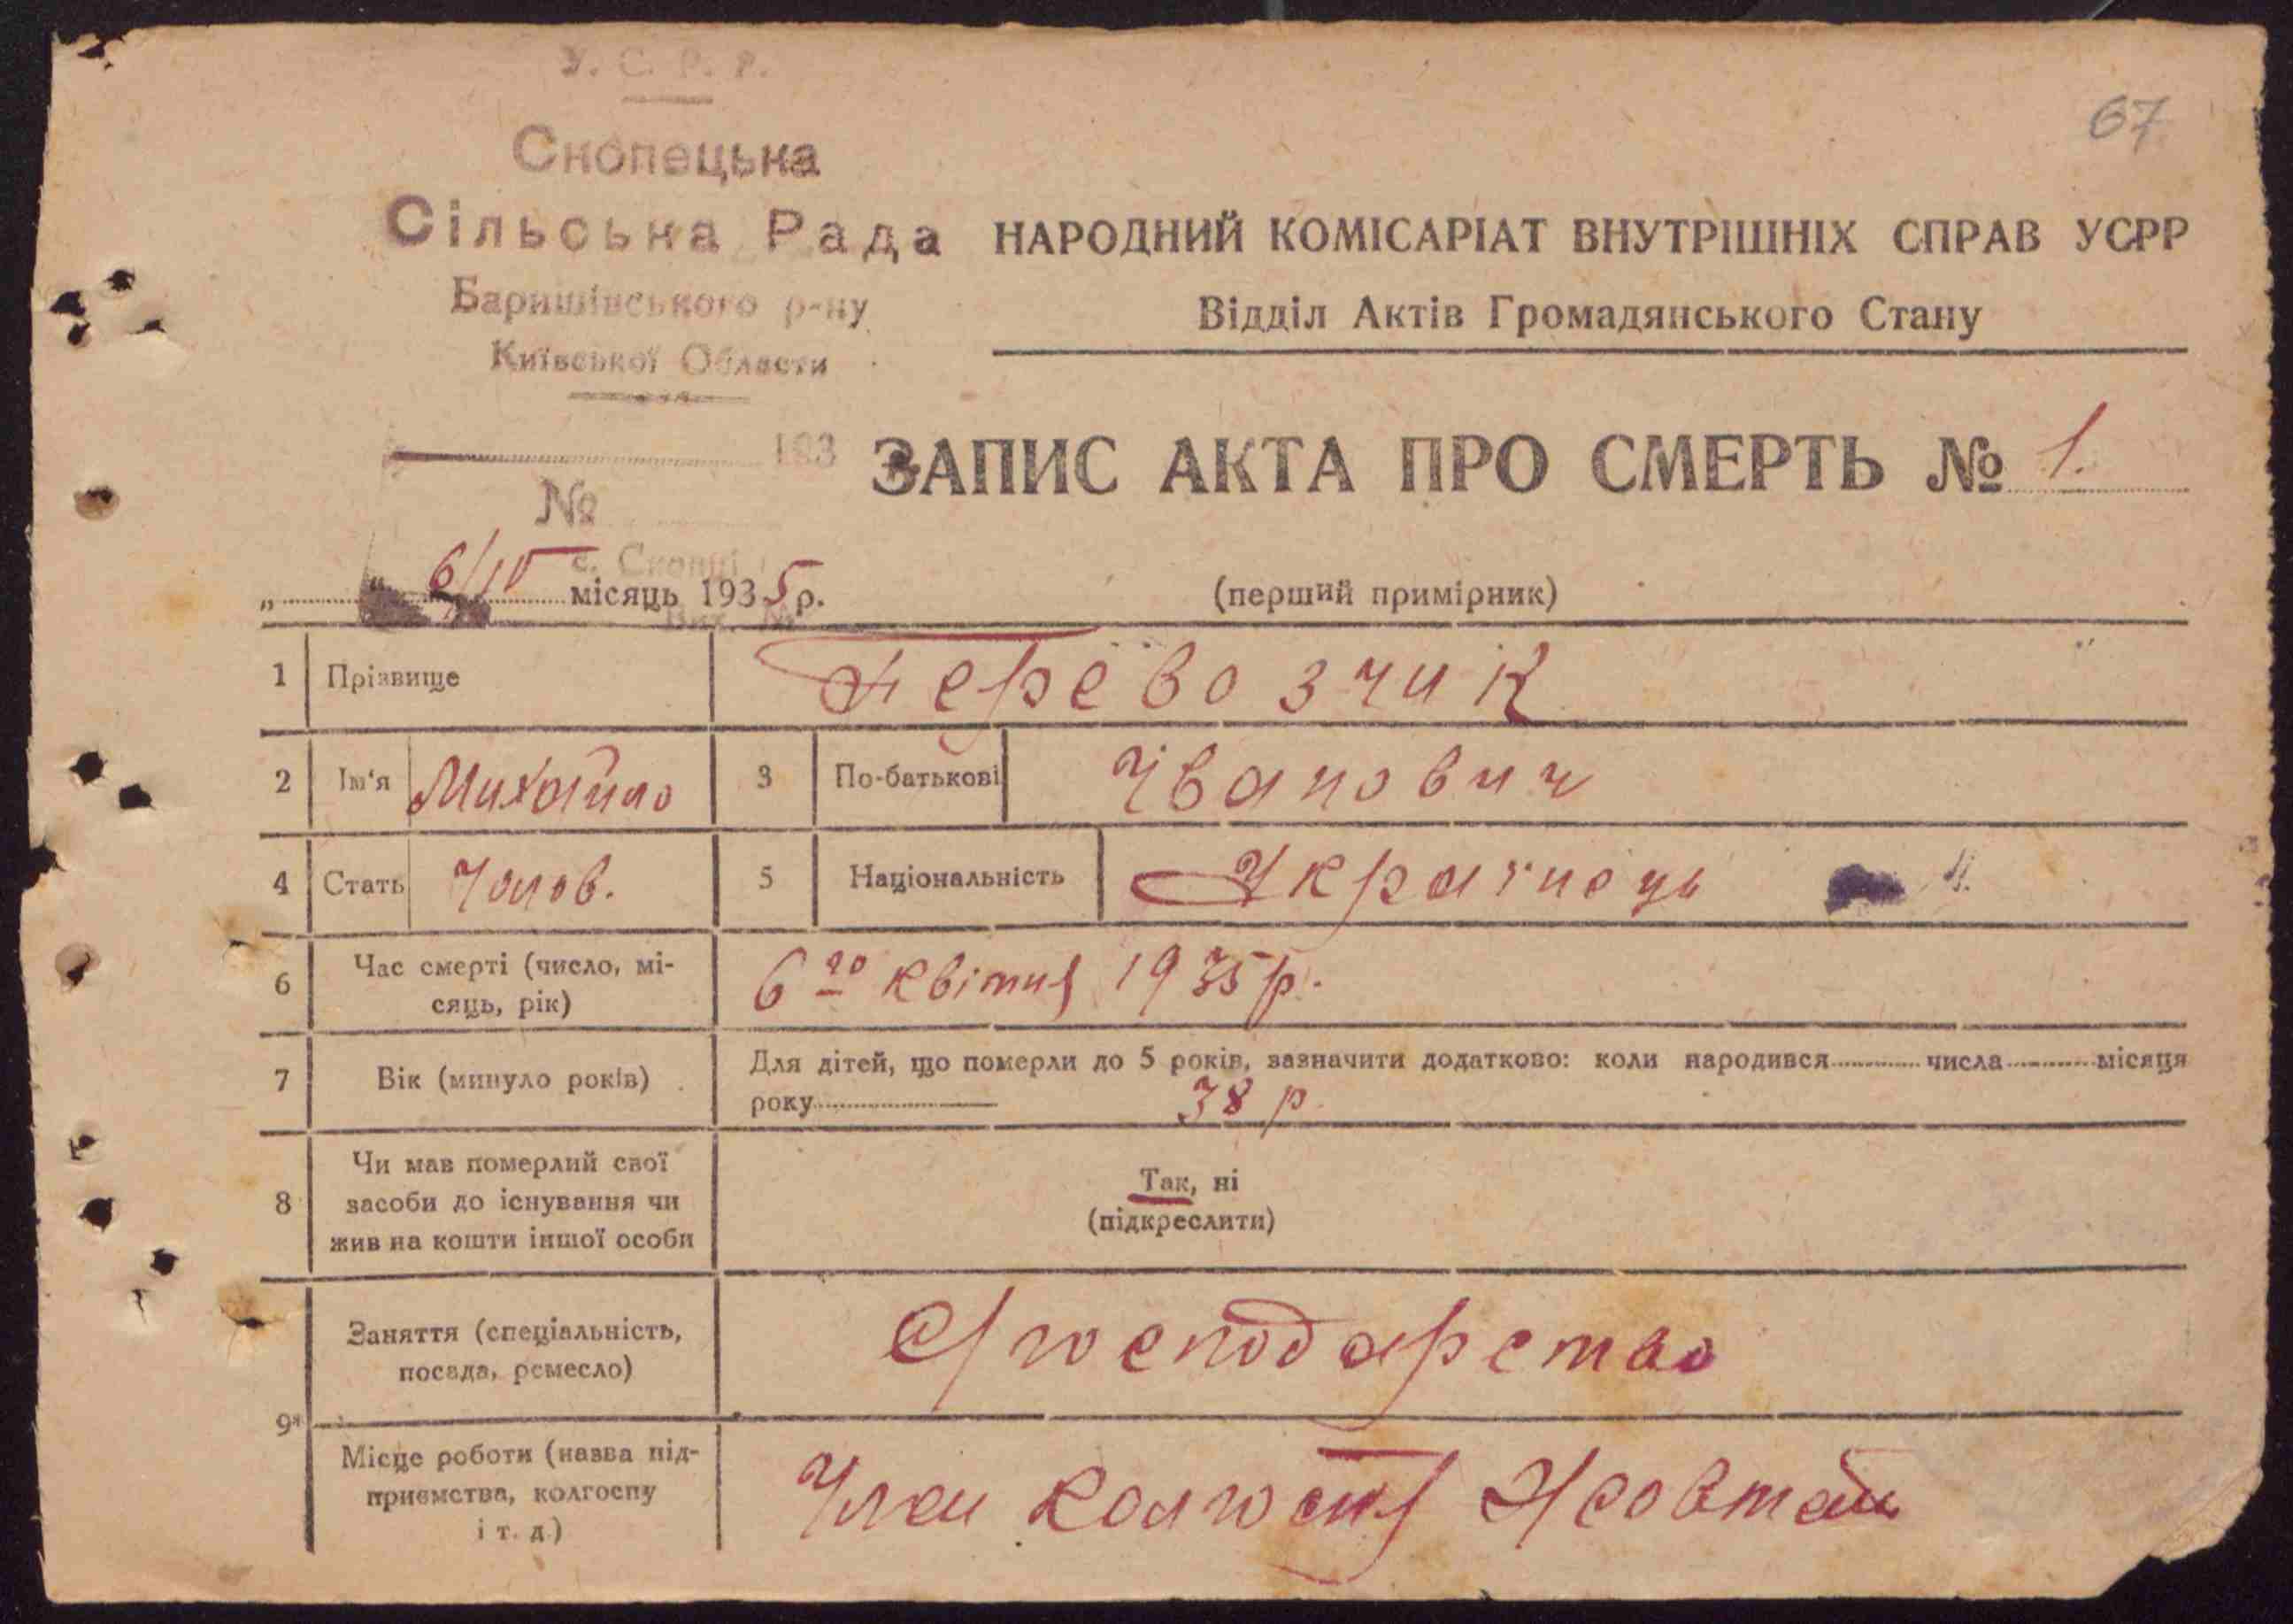 67
У. С. Р. Р.
Снопецька
Сільська Рада
Баришівського р-ну
Київської Области
193
№
с.
НАРОДНИЙ КОМІСАРІАТ ВНУТРІШНІХ СПРАВ УСРР
Відділ Актів Громадянського Стану
ЗАПИС АКТА ПРО СМЕРТЬ № 1.
„ “ 6/IV місяць 1935 р.
(перший примірник)
1 Прізвище Перевозчик
2 Ім‘я Михайло 3 По-батькові Іванович
4 Стать Чолов. 5 Національність Українець
6 Час смерті (число, мі-
сяць, рік) 6го квітня 1935 р.
7 Вік (минуло років) Для дітей, що померли до 5 років, зазначити додатково: коли народився числа місяця
року 38 р.
8 Чи мав померлий свої
засоби до існування чи
жив на кошти іншої особи
Так, ні
(підкреслити)
9* Заняття (спеціальність,
посада, ремесло)
господарство
Місце роботи (назва під-
приємства, колгоспу
і т. д.)
Член колгоспу